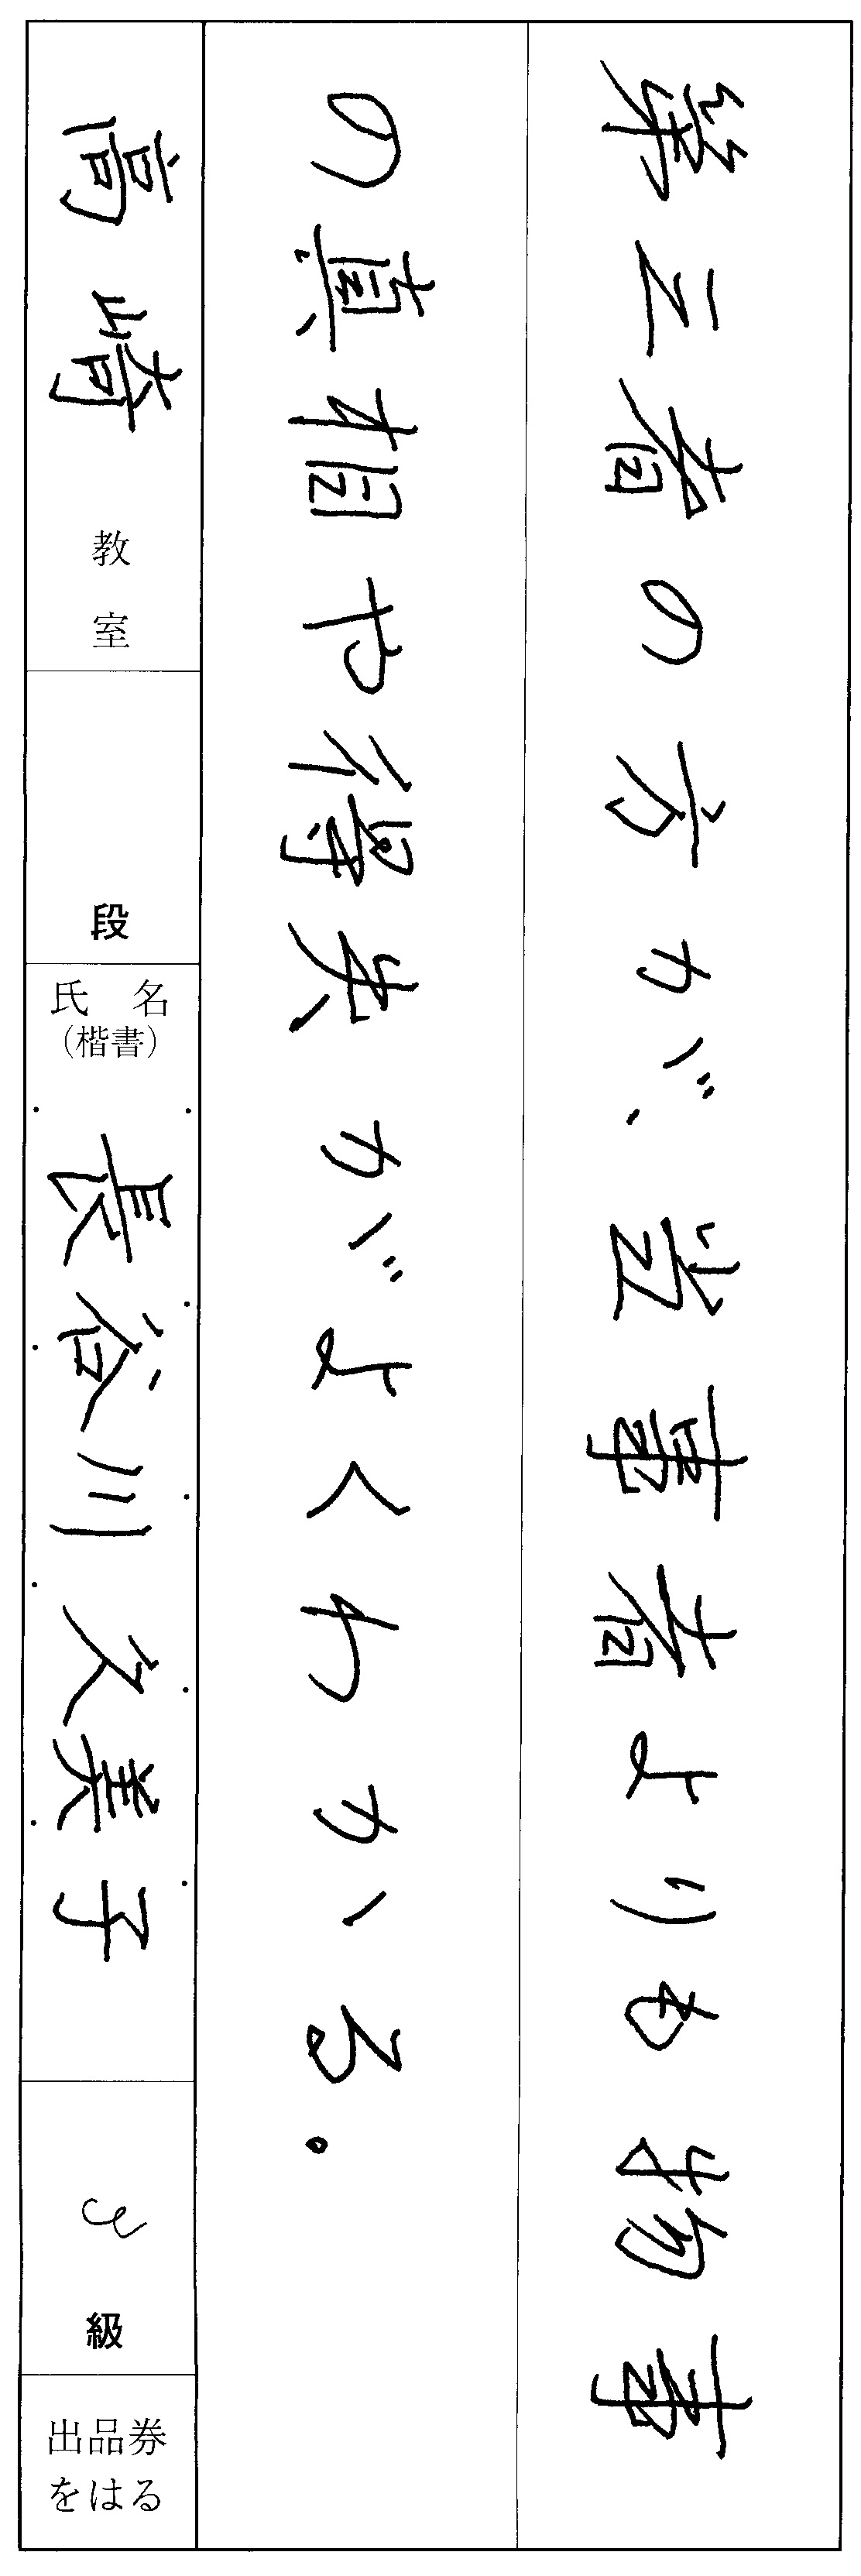 第三者の方が、当事者よりも物事
の真相や得失がよくわかる。
高崎教室
段
氏名
(楷書)
長谷川久美子
級
出品券
をはる